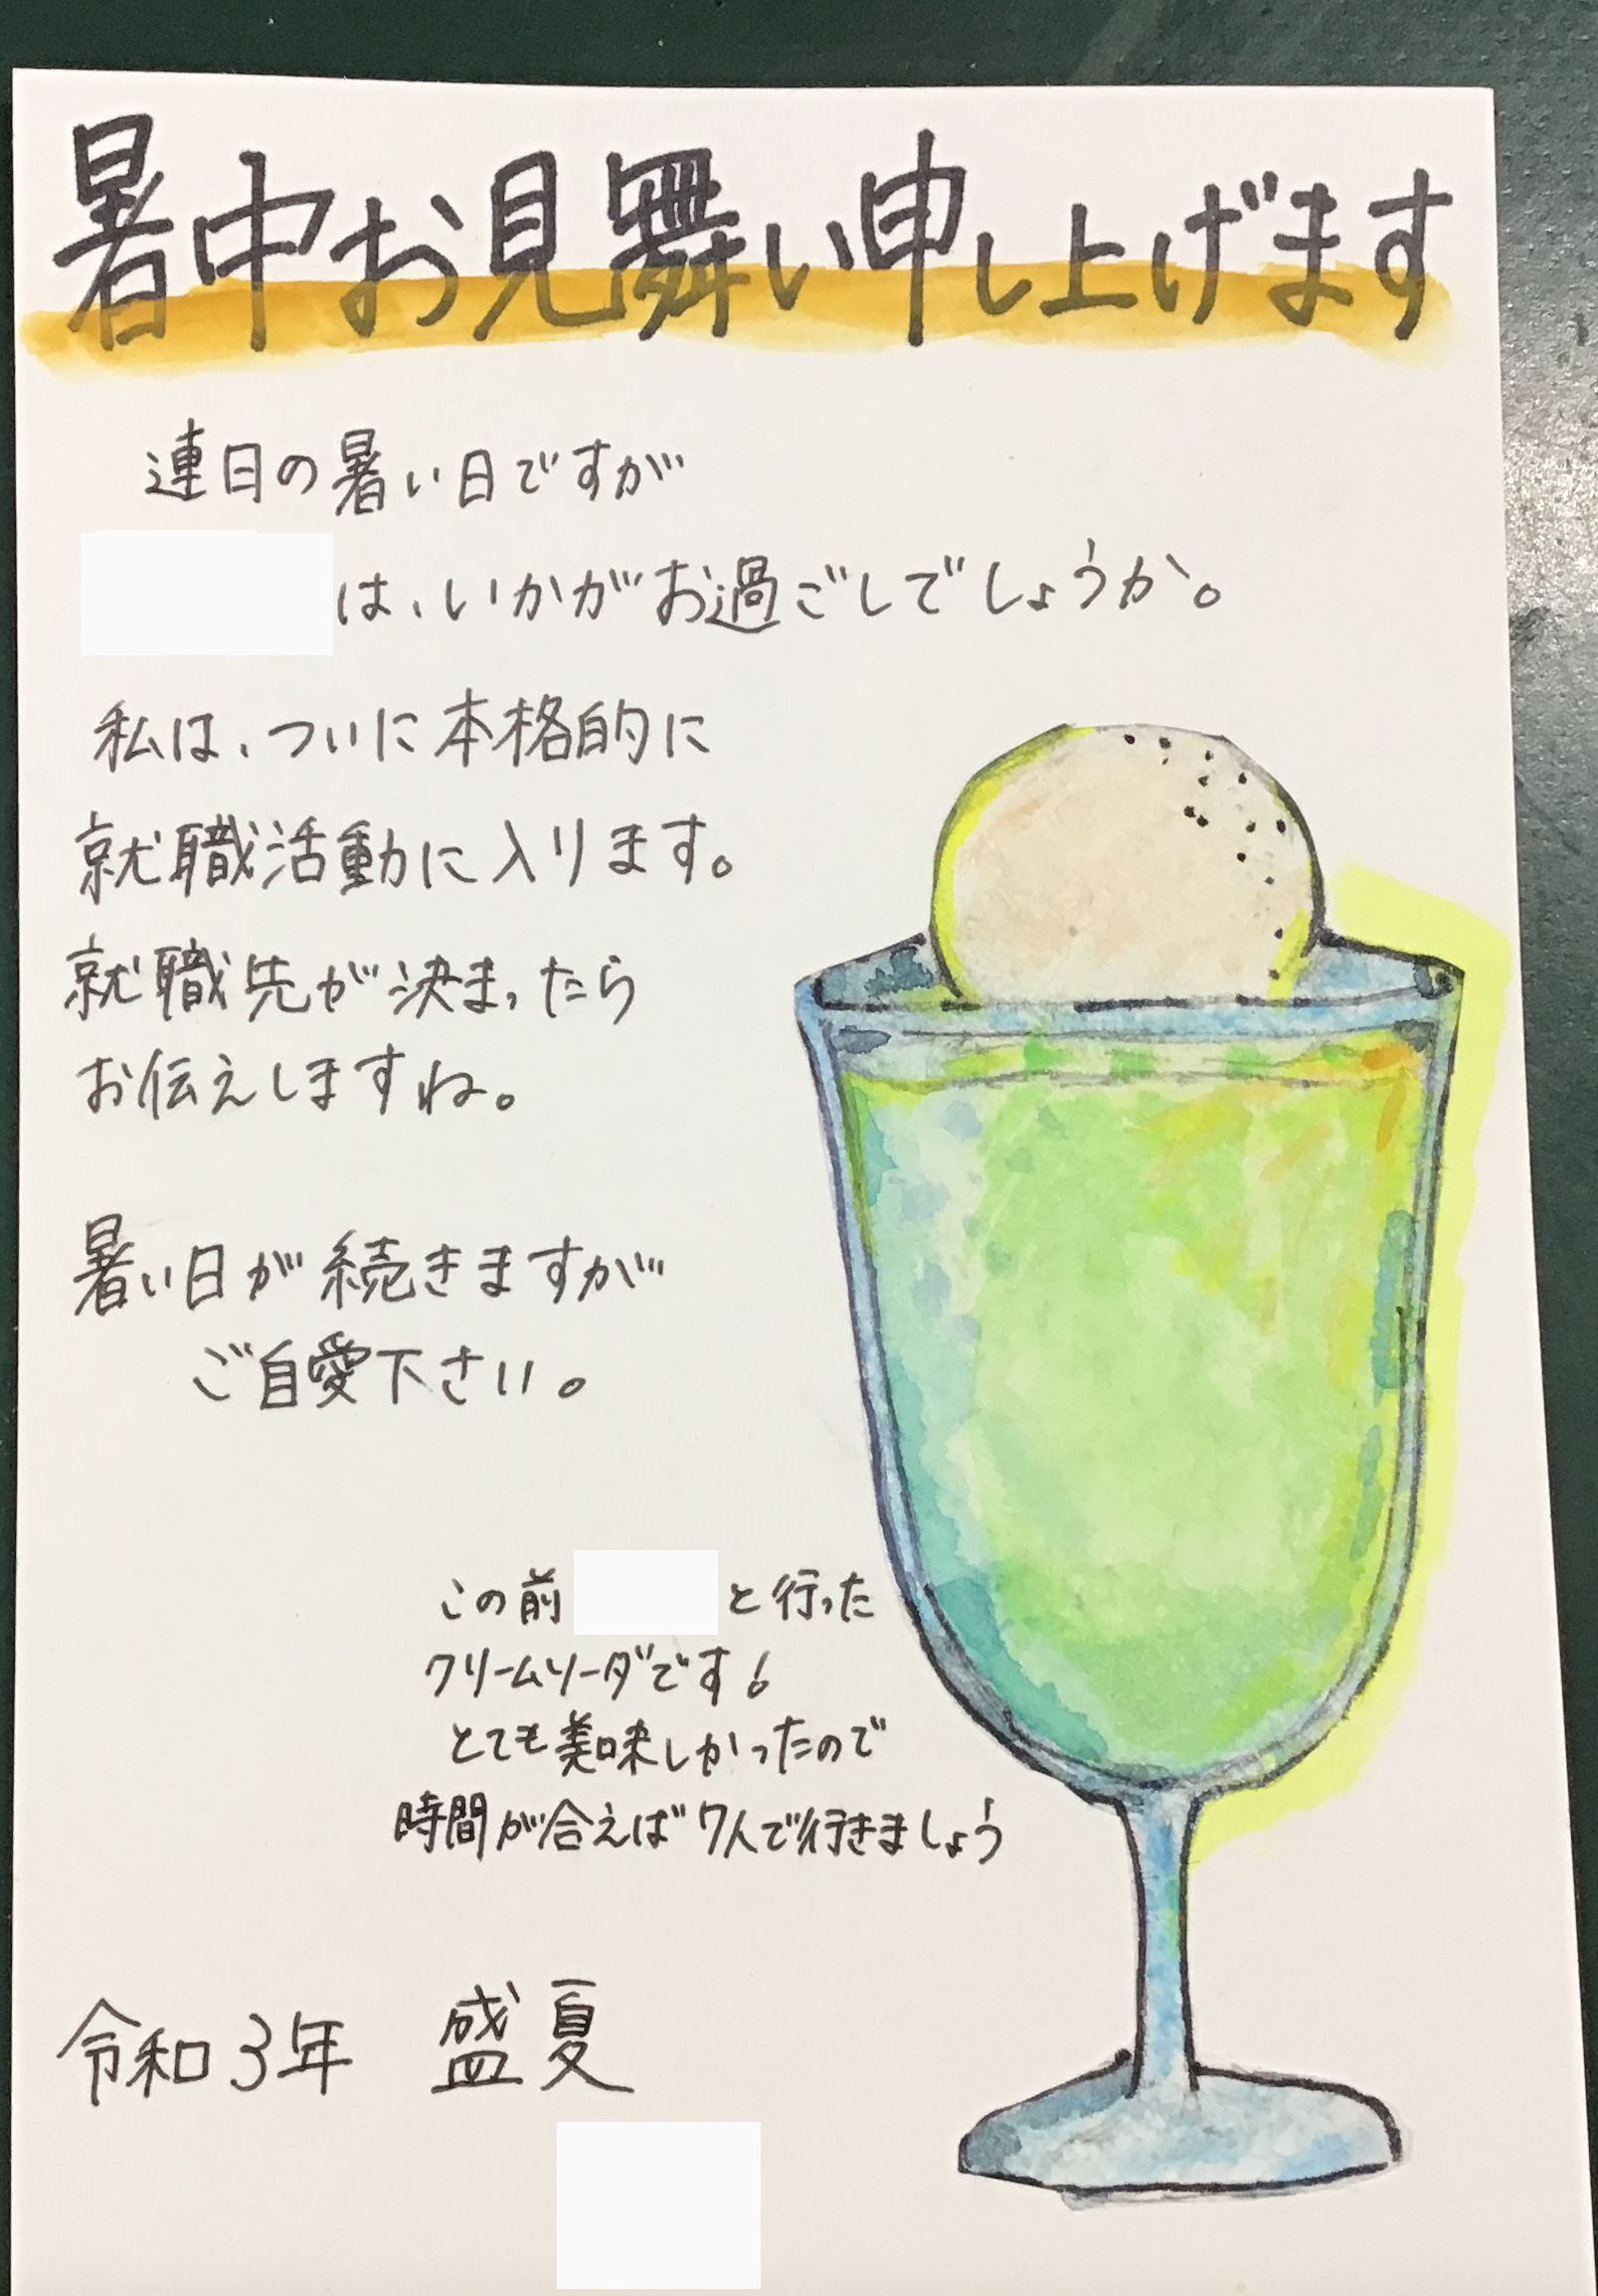 暑中お見舞い申し上げます
連日の暑い日ですが
は、いかがお過ごしでしょうか。
私は、ついに本格的に
就職活動に入ります。
就職先が決まったら
お伝えしますね。
暑い日が続きますが
ご自愛下さい。
この前 と行った
クリームソーダです!
とても美味しかったので
時間が合えば7人で行きましょう
令和3年 盛夏